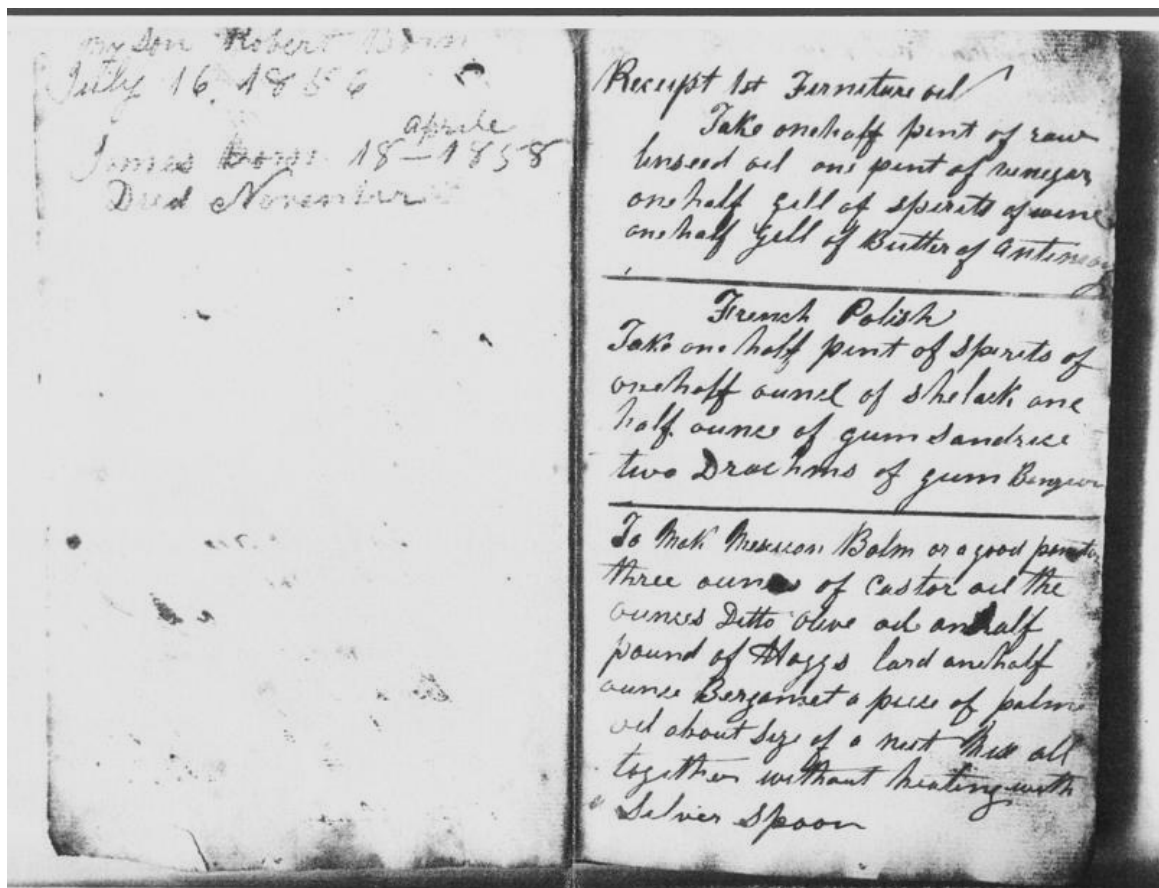 My Son Robert Born
July 16. 1856
Aprile
James Born 18 — 1858
Died November
Receipt 1st Furniture oil
Take onehalf pint of raw
linseed oil one pint of vinegar
onehalf gill of spirits of wine
onehalf Gill of Butter of Antimony
French Polish
Take one half pint of spirits of
onehalf ounce of shelack one
half ounce of gum sandrice
two Drachms of gum
To Mak Mexican Balm or a good
three ounces of Castor oil the
ounces Ditto olive oil onehalf
pound of Hoggs lard onehalf
ounce Bergamet a piece of palm
oil about size of a nut Mix all
together without heating with
Silver Spoon